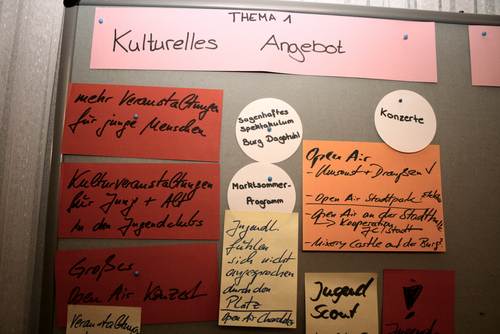 THEMA 1
Kulturelles Angebot
mehr Veranstaltungen
für junge Menschen
Kulturveranstaltungen
für Jung + Alt
in den Jugendclubs
Großes
Open Air Konzert
Veranstaltung
Sagenhaftes
Spektakulum
Burg Dagstuhl
Marktsommer-
Programm
Jugendl.
fühlen
sich nicht
angesprochen
durch den
Platz
Open Air
Konzerte
Open Air
- Umsonst + Draußen
- Open Air Stadtpark
- Open Air an der Stadthalle
→ Kooperation
- Misery Castle auf der Burg
Jugend
Scout
!